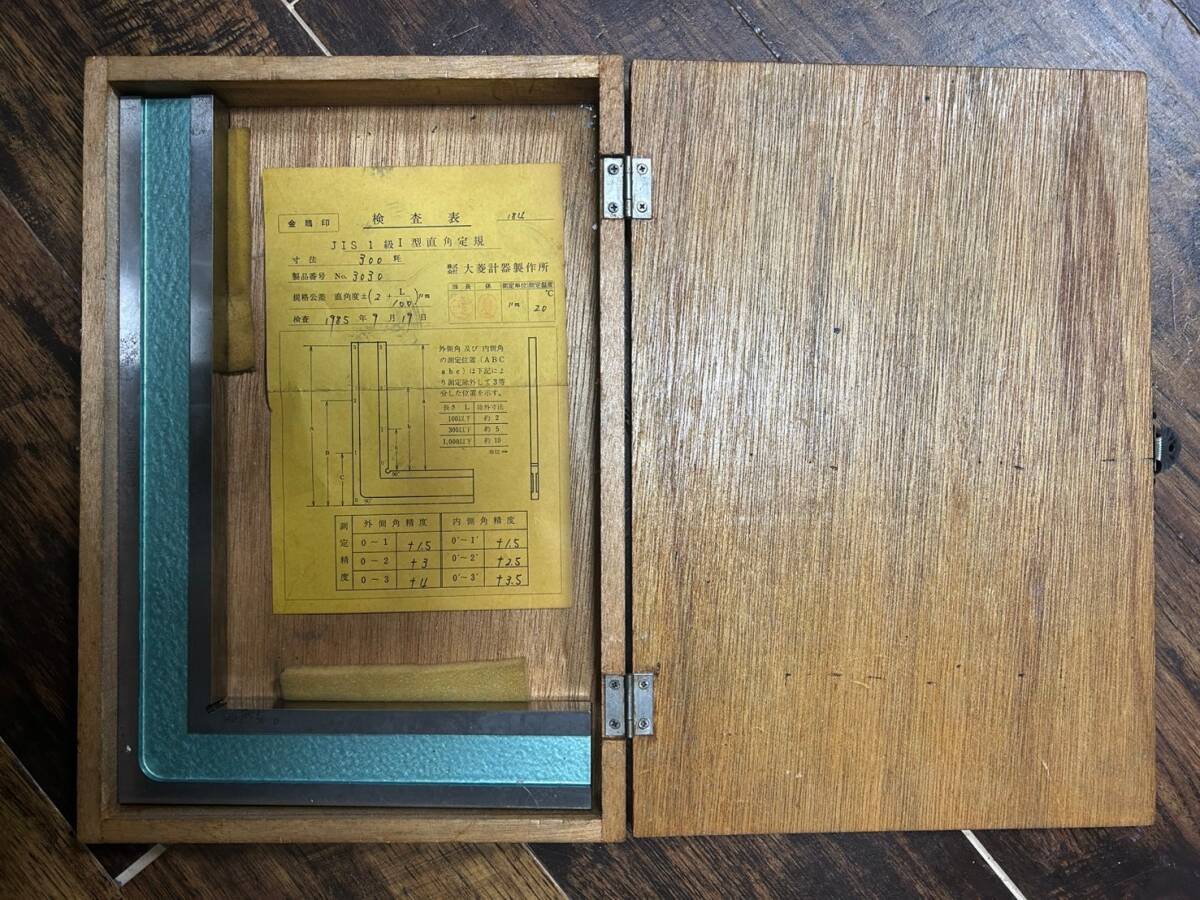 金鵄印 検査表 184
JIS1級I型直角定規
寸法 300 粍
製品番号 No. 3030
株式会社 大菱計器製作所
規格公差 直角度±(2+L/100)μm
検査 1985年9月19日
係長 係 測定単位 測定温度
μm ℃ 20
外側角及び内側角
の測定位置(ABC
abc)は下記によ
り測定除外して3等
分した位置を示す。
長さ L 除外寸法
100以下 約 2
300以下 約 5
1,000以下 約 10
単位mm
A
B
C
a
b
90°
90°
測定精度
外側角精度 内側角精度
0~1 +1.5 0'~1' +1.5
0~2 +3 0'~2' +2.5
0~3 +4 0'~3' +3.5